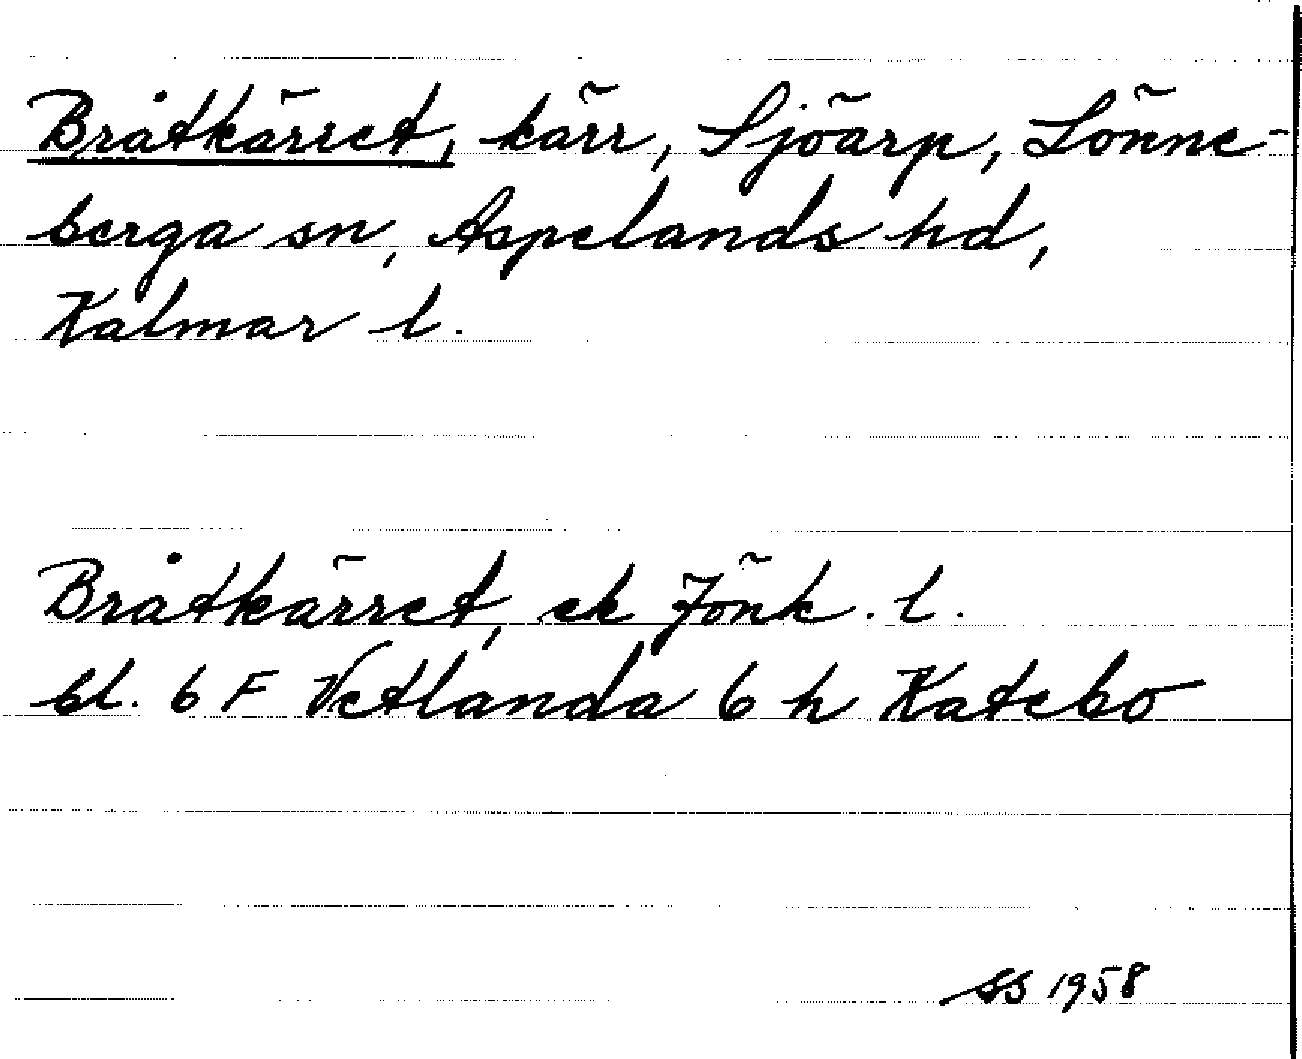 Bråtkärret, kärr, Sjöarp, Lönne-
berga sn, Aspelands hd,
Kalmar l.
Bråtkärret, ek Jönk. l.
bl. 6 F Vetlanda 6 h Katebo
SS 1958